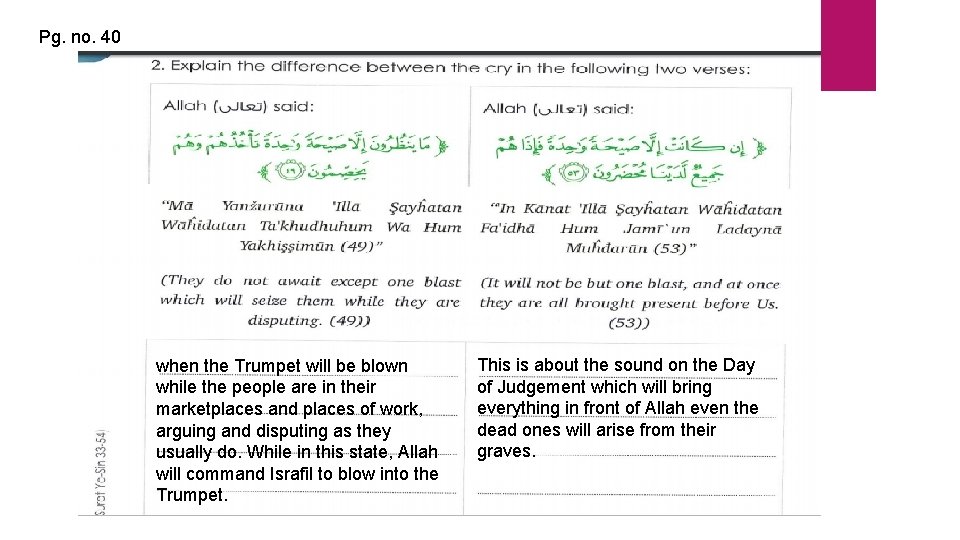 Pg. no. 40
2. Explain the difference between the cry in the following two verses:
Allah (تعالى) said:
﴿ مَا يَنظُرُونَ إِلَّا صَيْحَةً وَاحِدَةً تَأْخُذُهُمْ وَهُمْ
يَخِصِّمُونَ ﴾
“Mā Yanžurūna 'Illa Şayĥatan
Wāĥidatan Ta'khudhuhum Wa Hum
Yakhişşimūn (49)”
(They do not await except one blast
which will seize them while they are
disputing. (49))
when the Trumpet will be blown
while the people are in their
marketplaces and places of work,
arguing and disputing as they
usually do. While in this state, Allah
will command Israfil to blow into the
Trumpet.
Allah (تعالى) said:
﴿ إِن كَانَتْ إِلَّا صَيْحَةً وَاحِدَةً فَإِذَا هُمْ
جَمِيعٌ لَّدَيْنَا مُحْضَرُونَ ٥٣ ﴾
“'In Kānat 'Illā Şayĥatan Wāĥidatan
Fa'idhā Hum Jamī`un Ladaynā
Muĥđarūn (53)”
(It will not be but one blast, and at once
they are all brought present before Us.
(53))
This is about the sound on the Day
of Judgement which will bring
everything in front of Allah even the
dead ones will arise from their
graves.
Surat Ya-Sin 33-54